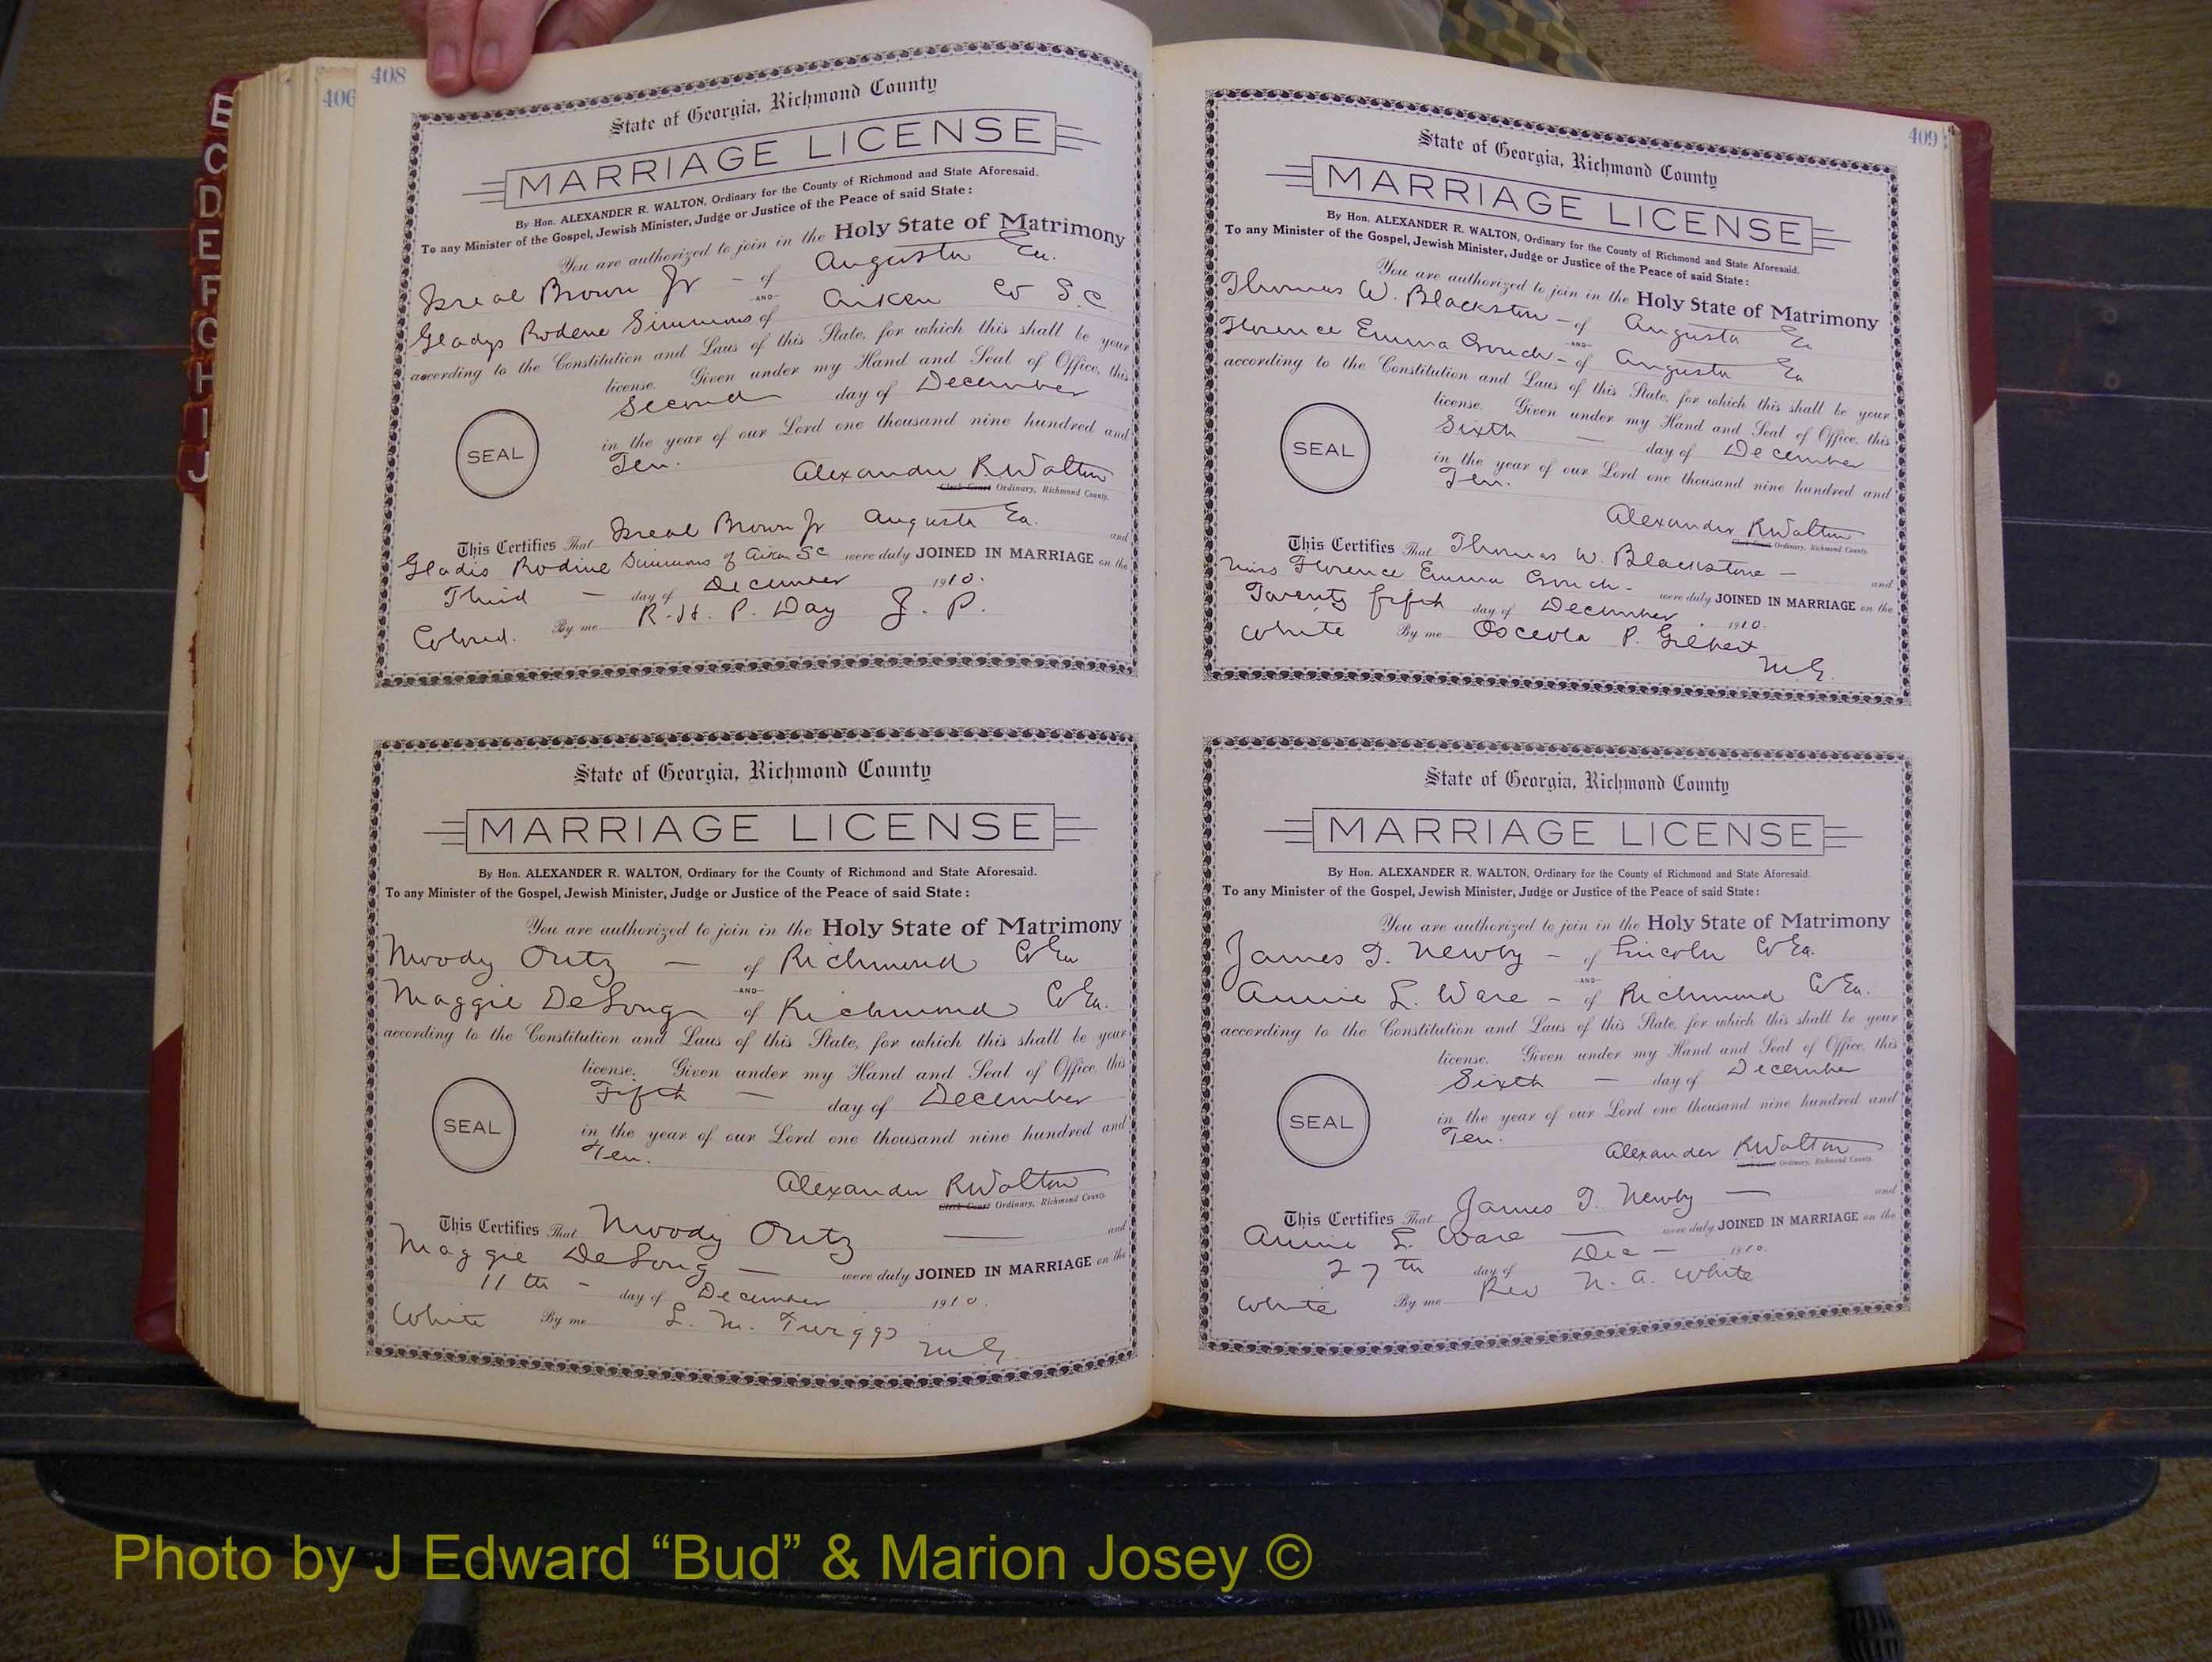 408
406
State of Georgia, Richmond County
MARRIAGE LICENSE
By Hon. ALEXANDER R. WALTON, Ordinary for the County of Richmond and State Aforesaid.
To any Minister of the Gospel, Jewish Minister, Judge or Justice of the Peace of said State:
You are authorized to join in the Holy State of Matrimony
Isreal Brown Jr - of Augusta Ga.
-AND-
Gladys Rodene Simmons of Aiken Co S.C.
according to the Constitution and Laws of this State, for which this shall be your
license. Given under my Hand and Seal of Office, this
Second day of December
in the year of our Lord one thousand nine hundred and
SEAL
Ten.
Alexander R Walton
Clerk Court Ordinary, Richmond County.
This Certifies That Isreal Brown Jr Augusta Ga. and
Gladis Rodine Simmons of Aiken SC were duly JOINED IN MARRIAGE on the
Third - day of December 1910.
Colored. By me R. H. P. Day J. P.
State of Georgia, Richmond County
MARRIAGE LICENSE
By Hon. ALEXANDER R. WALTON, Ordinary for the County of Richmond and State Aforesaid.
To any Minister of the Gospel, Jewish Minister, Judge or Justice of the Peace of said State:
You are authorized to join in the Holy State of Matrimony
Moody Outz - of Richmond Co Ga
-AND-
Maggie DeLong of Richmond Co Ga.
according to the Constitution and Laws of this State, for which this shall be your
license. Given under my Hand and Seal of Office, this
Fifth - day of December
in the year of our Lord one thousand nine hundred and
SEAL
Ten.
Alexander R Walton
Clerk Court Ordinary, Richmond County.
This Certifies That Moody Outz and
Maggie DeLong - were duly JOINED IN MARRIAGE on the
11th - day of December 1910.
White By me L. M. Twiggs M G.
409
State of Georgia, Richmond County
MARRIAGE LICENSE
By Hon. ALEXANDER R. WALTON, Ordinary for the County of Richmond and State Aforesaid.
To any Minister of the Gospel, Jewish Minister, Judge or Justice of the Peace of said State:
You are authorized to join in the Holy State of Matrimony
Thomas W. Blackston - of Augusta Ga
-AND-
Florence Emma Crouch - of Augusta Ga
according to the Constitution and Laws of this State, for which this shall be your
license. Given under my Hand and Seal of Office, this
Sixth - day of December
in the year of our Lord one thousand nine hundred and
SEAL
Ten.
Alexander R Walton
Clerk Court Ordinary, Richmond County.
This Certifies That Thomas W. Blackstone - and
Miss Florence Emma Crouch - were duly JOINED IN MARRIAGE on the
Twenty fifth day of December 1910.
White By me Osceola P. Gilbert
M G.
State of Georgia, Richmond County
MARRIAGE LICENSE
By Hon. ALEXANDER R. WALTON, Ordinary for the County of Richmond and State Aforesaid.
To any Minister of the Gospel, Jewish Minister, Judge or Justice of the Peace of said State:
You are authorized to join in the Holy State of Matrimony
James T. Newby - of Lincoln Co Ga.
-AND-
Annie L. Ware - of Richmond Co Ga.
according to the Constitution and Laws of this State, for which this shall be your
license. Given under my Hand and Seal of Office, this
Sixth - day of December
in the year of our Lord one thousand nine hundred and
SEAL
Ten.
Alexander R Walton
Clerk Court Ordinary, Richmond County.
This Certifies That James T. Newby - and
Annie L. Ware - were duly JOINED IN MARRIAGE on the
27th day of Dec - 1910.
White By me Rev N. A. White
C
D
E
F
G
H
I
J
Photo by J Edward “Bud” & Marion Josey ©